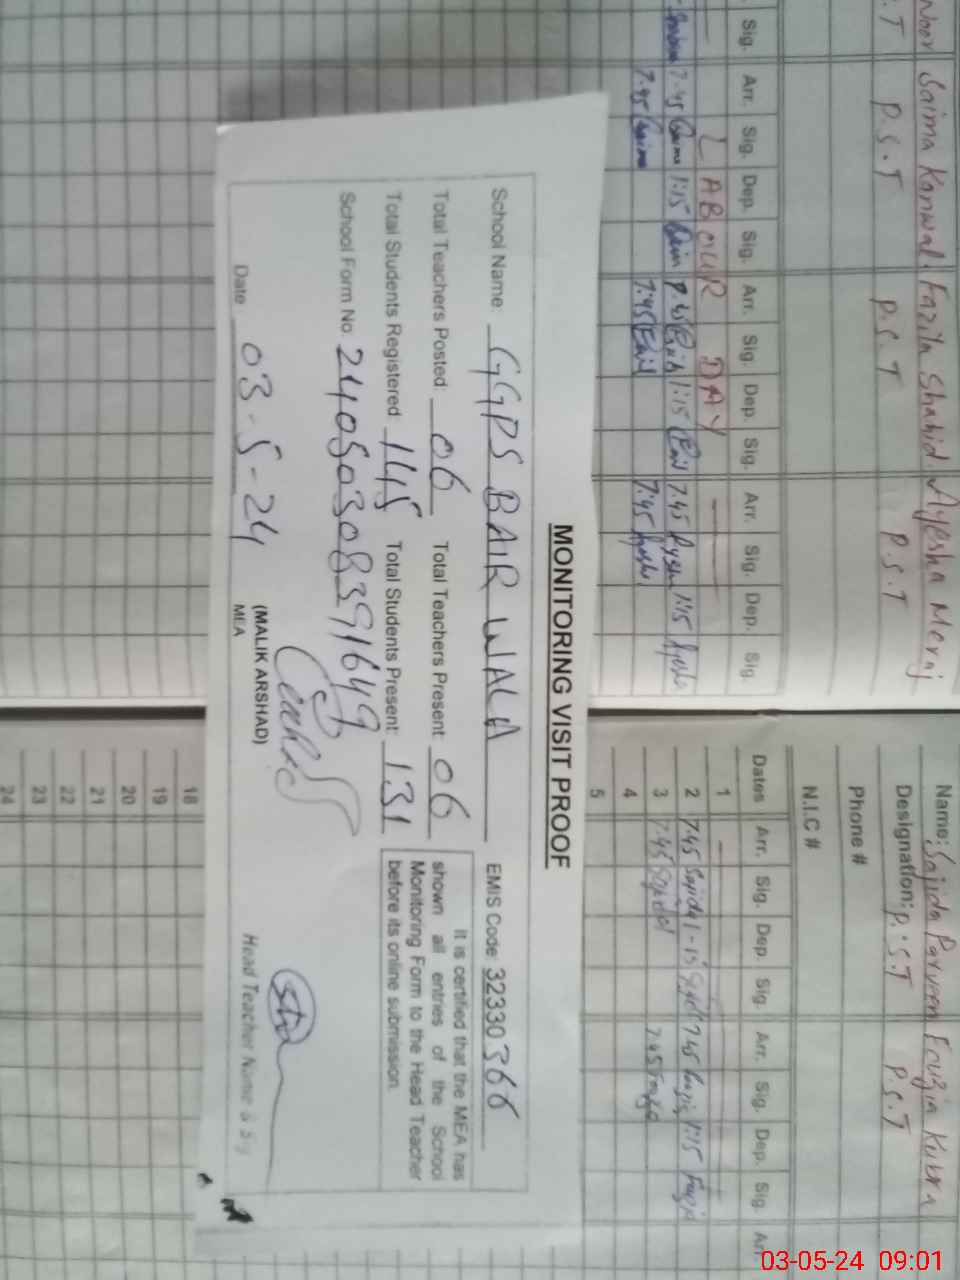 Noor Saima Kanwal Fazila Shahid Ayesha Meraj
S.T P.S.T P.S.T P.S.T
Sig. Arr. Sig. Dep. Sig. Arr. Sig. Dep. Sig. Arr. Sig. Dep. Sig.
LABOUR DAY
7:45 1:15 1:15 7.45 1:15
7:45 7:45 7:45
Name: Sajida Parveen Fouzia Kubra
Designation: P.S.T P.S.T
Phone #
N.I.C #
Dates Arr. Sig. Dep. Sig. Arr. Sig. Dep. Sig. Arr
1
2 7.45 Sajida 1-15 7:45 1:15
3 7.45 Sajida 7.45
4
5
MONITORING VISIT PROOF
School Name: GGPS BAIR WALA EMIS Code: 32330366
Total Teachers Posted: 06 Total Teachers Present: 06
Total Students Registered 145 Total Students Present: 131
School Form No. 24050308391649
It is certified that the MEA has
shown all entries of the School
Monitoring Form to the Head Teacher
before its online submission.
Date: 03-5-24
(MALIK ARSHAD)
MEA
Head Teacher Name & Sig
18
19
20
21
22
23
24
03-05-24 09:01